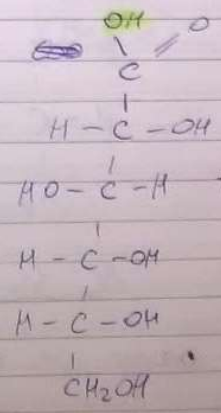 OH O
C
H - C - OH
HO - C - H
H - C - OH
H - C - OH
CH2OH